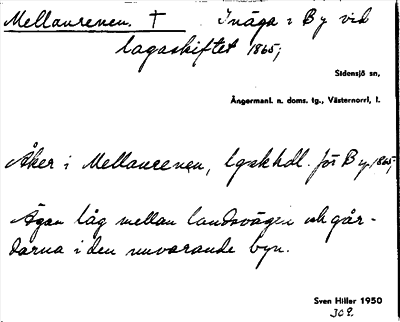 Mellanrenen. † Inäga i By vid
lagaskiftet 1865;
Sidensjö sn,
Ångermanl. n. doms. tg., Västernorrl. l.
Åker i Mellanrenen, lgskhdl. för By 1865;
Ägan låg mellan landsvägen och går-
darna i den nuvarande byn.
Sven Hiller 1950